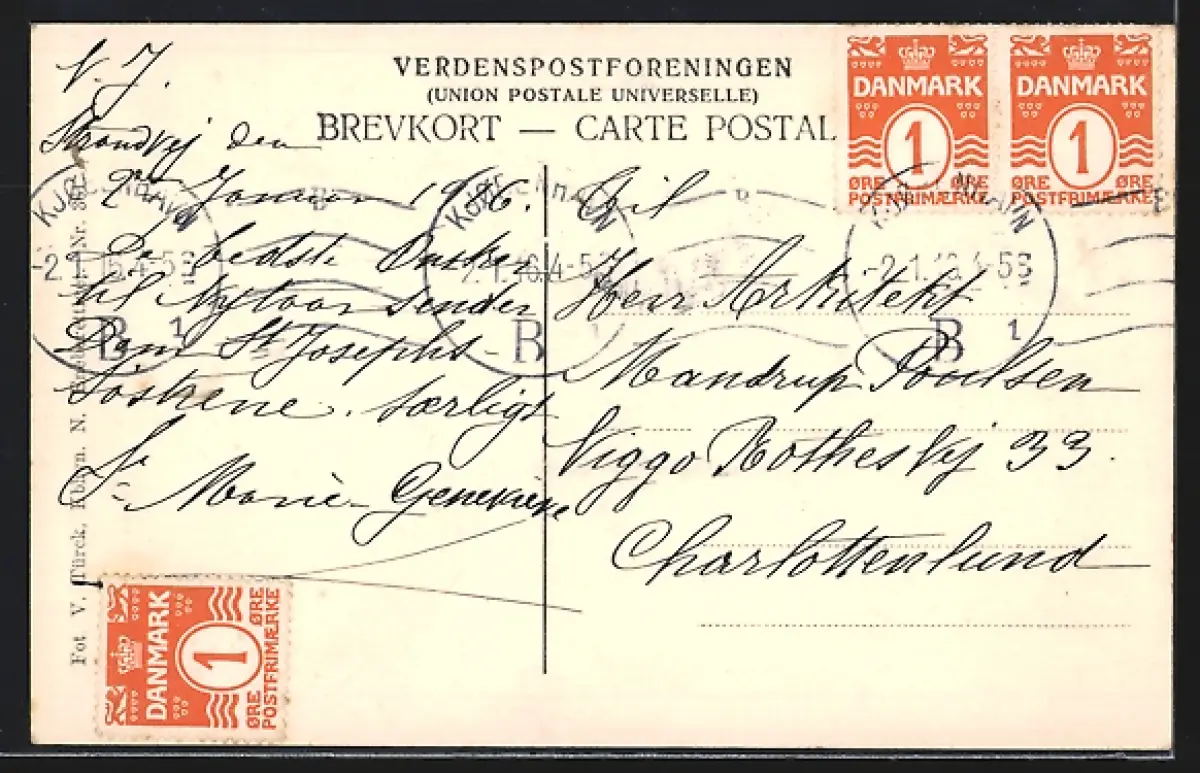 V. J.
Strandvej den
2den Januar 1916.
De bedste Ønsker
til Nytaar sender
Dem St Josephs-
Søstrene. særligt
Sr Marie Genevieve
VERDENSPOSTFORENINGEN
(UNION POSTALE UNIVERSELLE)
BREVKORT — CARTE POSTAL
Til
Herr Arkitekt
Mandrup Poulsen
Viggo Rothesvej 33.
Charlottenlund
DANMARK
1
ØRE ØRE
POSTFRIMÆRKE
DANMARK
1
ØRE ØRE
POSTFRIMÆRKE
DANMARK
1
ØRE ØRE
POSTFRIMÆRKE
KJØBENHAVN
B 1
KJØBENHAVN
B 1
KJØBENHAVN
-2.1.16.4-5E
B 1
Fot V. Türck, Kbhvn. N.